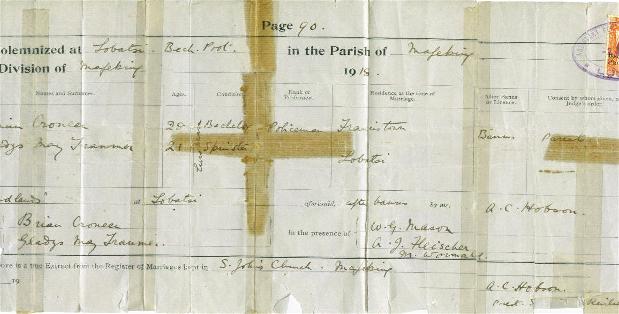 Page 90.
olemnized at Lobatsi. Bech. Prot. in the Parish of Mafeking
Division of Mafeking 1918.
Names and Surname. Ages. Condition. Rank or Profession. Residence at the time of Marriage. After Banns or Licence. Consent by whom given, or Judge's order.
rian Croneen 28 Bachelor Policeman Francistown Banns
adys May Tranmer 21 Spinster Lobatsi
dlands" at Lobatsi aforesaid, after banns by me,
A. C. Hobson.
Brian Croneen
Gladys May Tranmer.
In the presence of
W. G. Mason
A. J. Fleischer
M. Wormald
ove is a true Extract from the Register of Marriages kept in S. John's Church. Mafeking
19
A. C. Hobson.